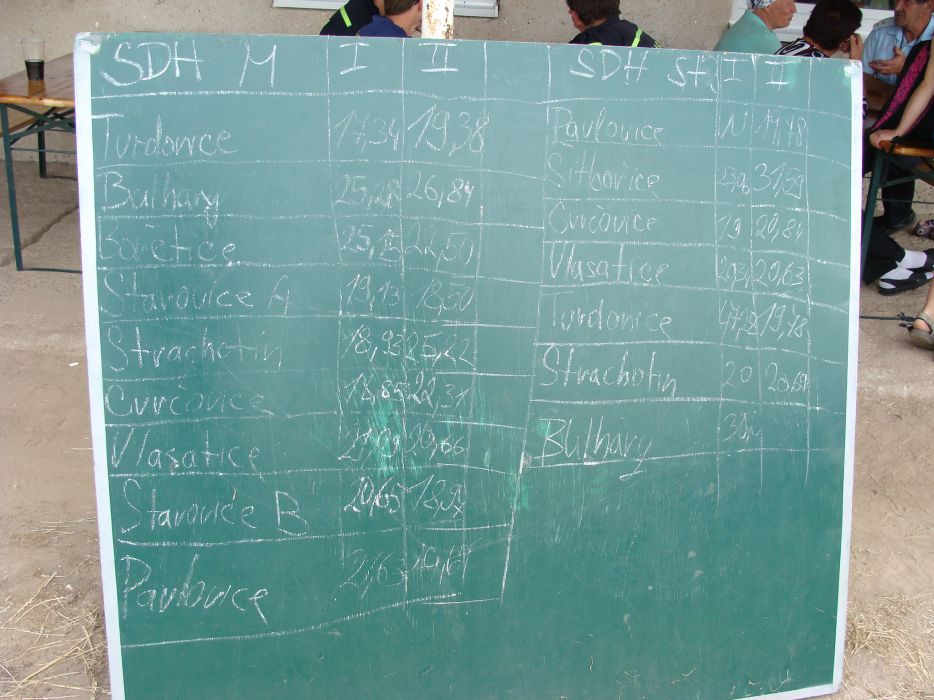 SDH M I II
Tvrdonice 17,34 19,38
Bulhary 25,28 26,84
Bořetice 25,15 22,50
Starovice A 19,13 18,50
Strachotín 18,93 25,22
Cvrčovice 18,85 22,31
Vlasatice
Starovice B 20,65
Pavlovice
SDH I II
Pavlovice N
Sitbořice 31,59
Cvrčovice 19 20,81
Vlasatice 20,63
Tvrdonice 19,78
Strachotín 20
Bulhary